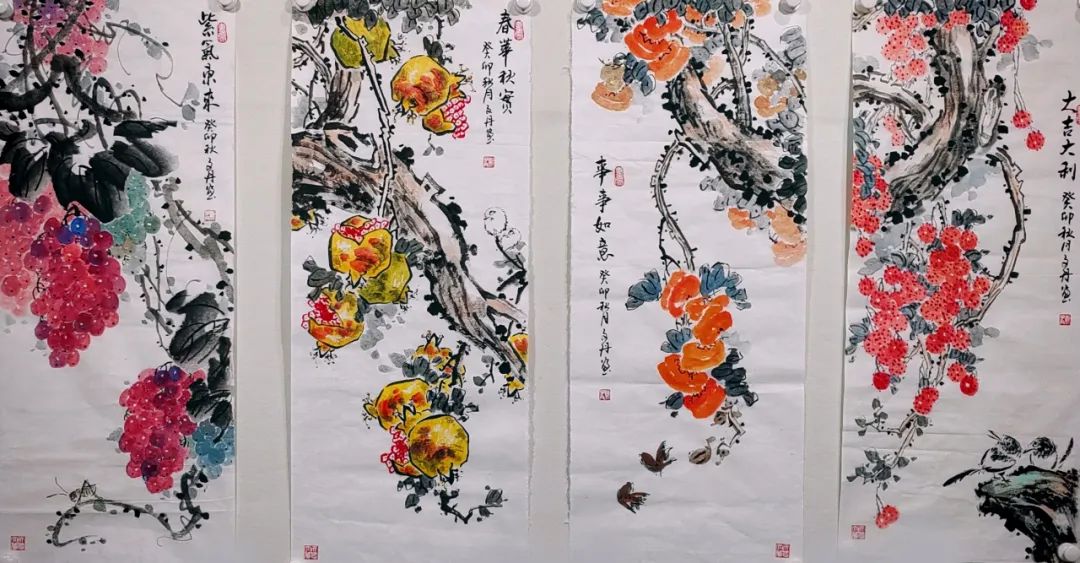 紫氣東来
癸卯秋文丹寫
春華秋實
癸卯秋月文丹寫
事事如意
癸卯秋月文丹寫
大吉大利
癸卯秋月文丹寫